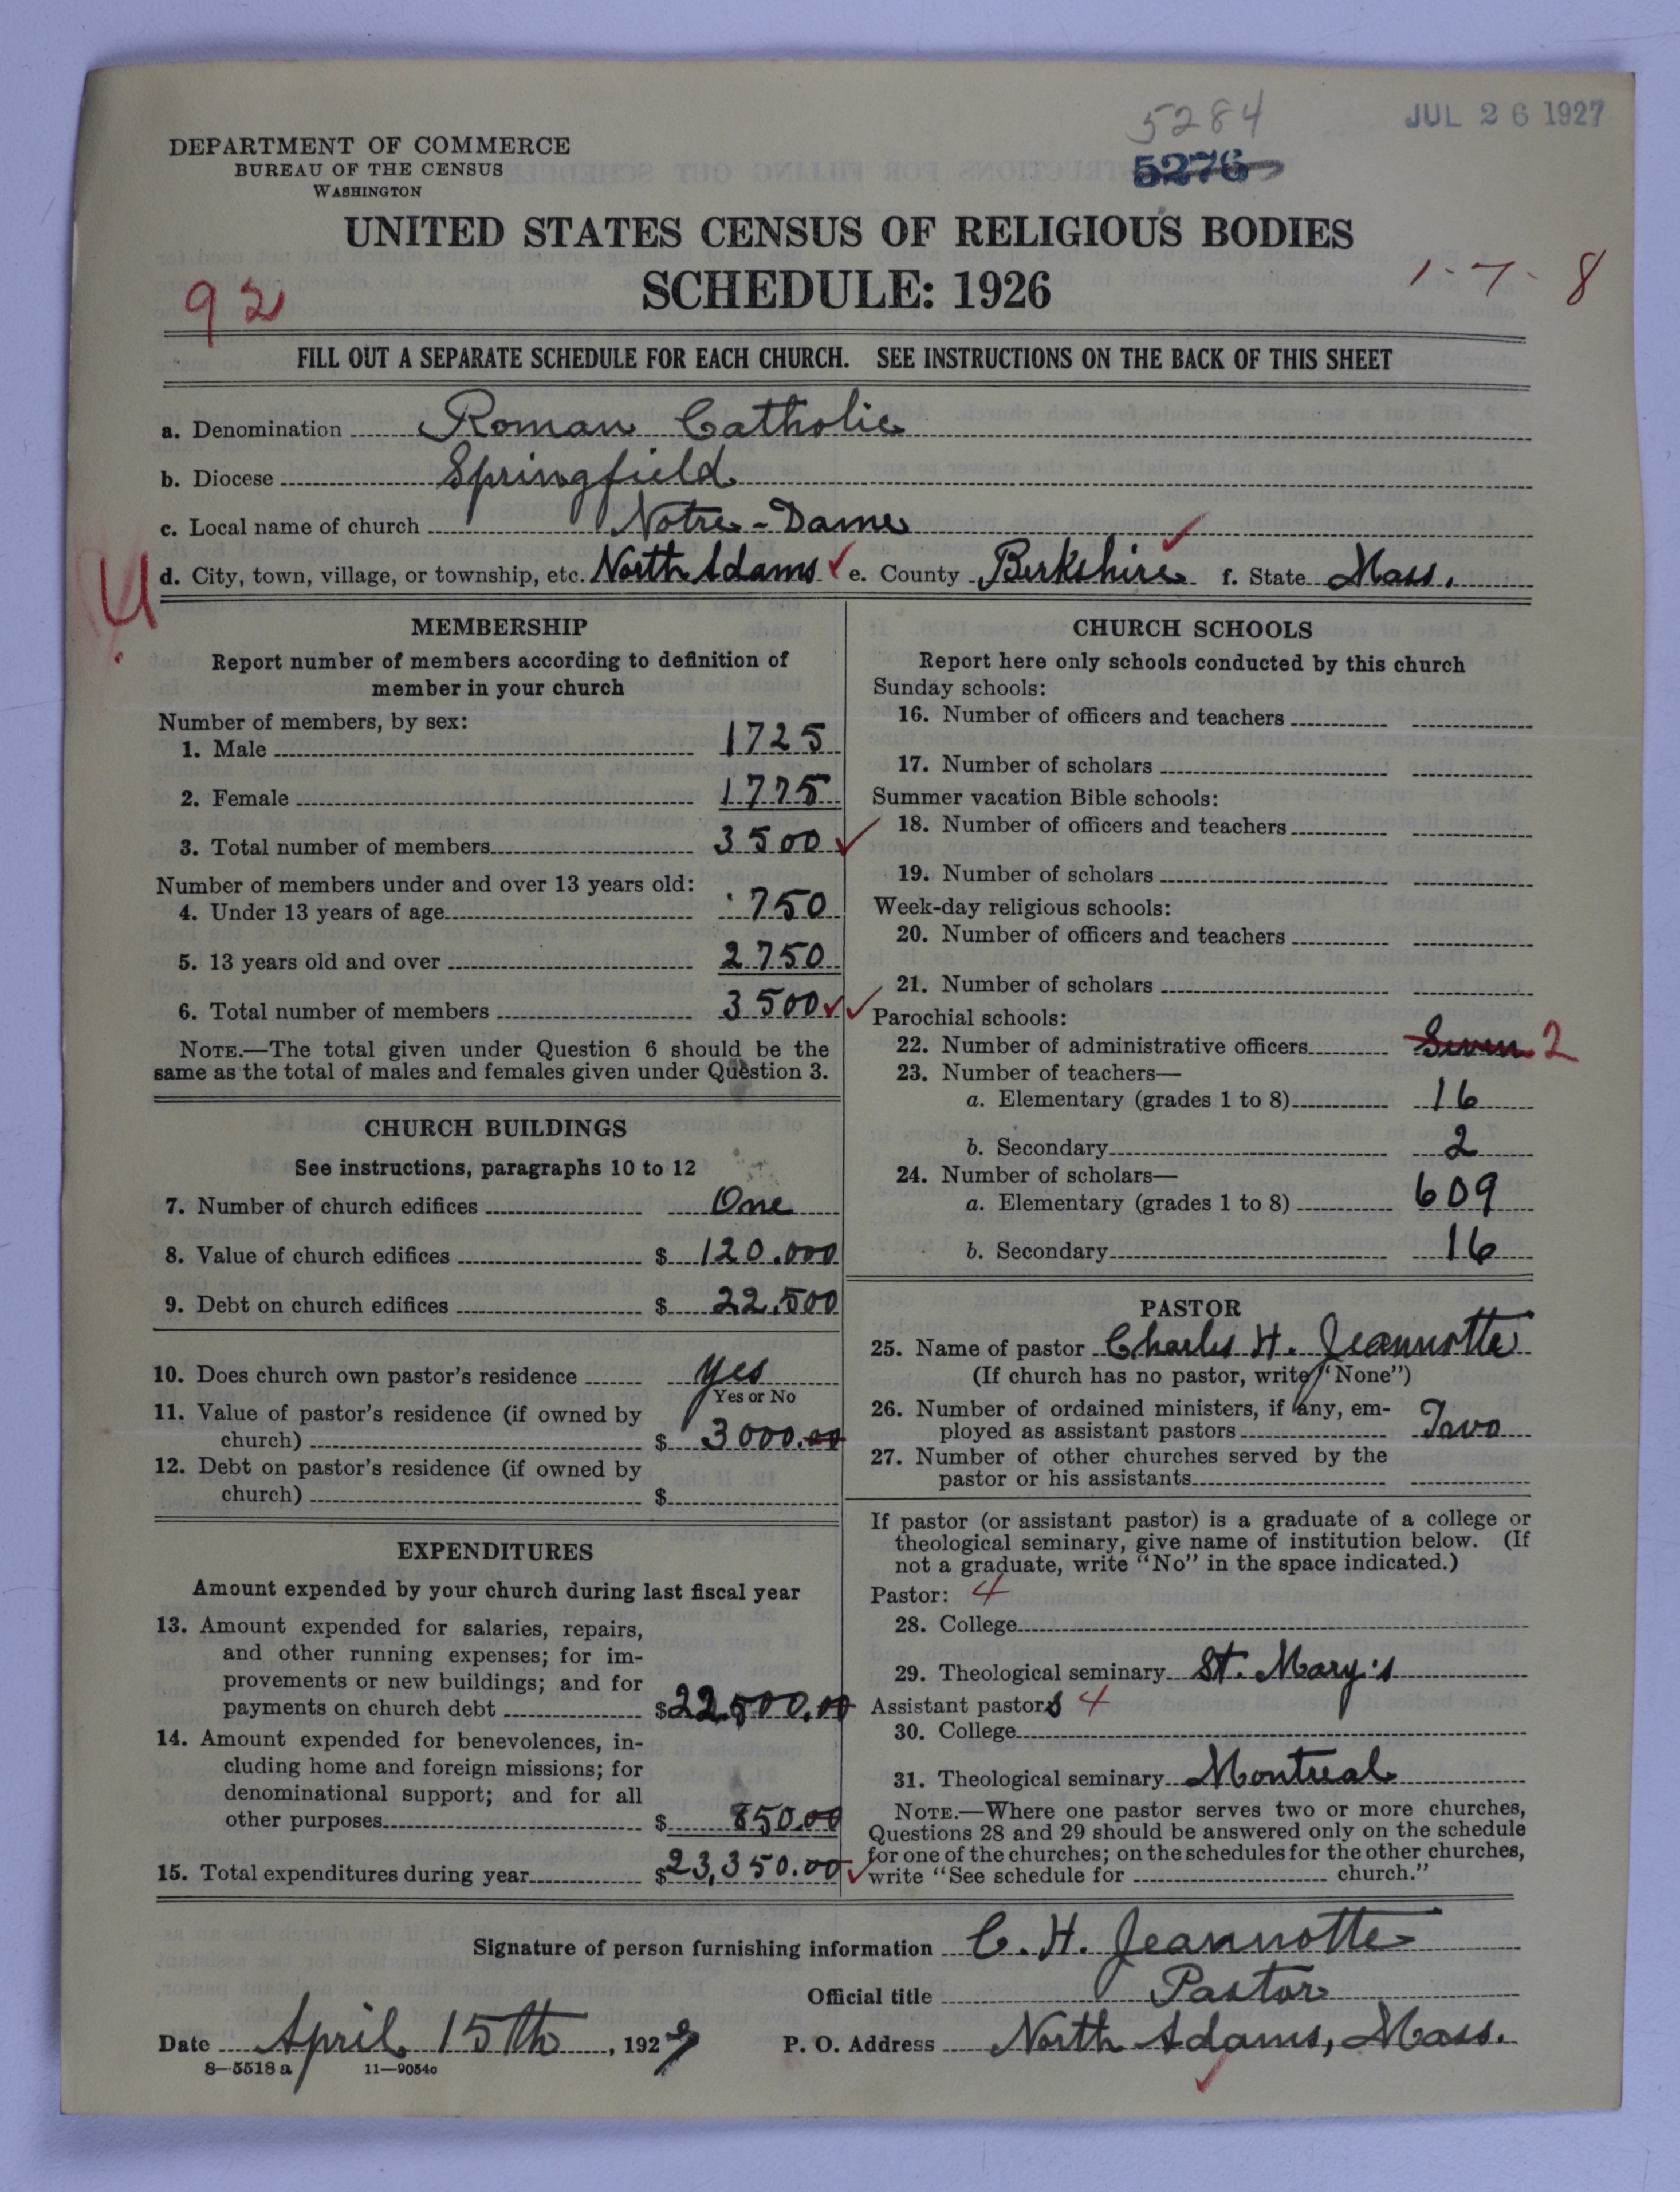 5284
JUL 26 1927
DEPARTMENT OF COMMERCE
BUREAU OF THE CENSUS
WASHINGTON
5276
UNITED STATES CENSUS OF RELIGIOUS BODIES
SCHEDULE: 1926
92
1-7-8
FILL OUT A SEPARATE SCHEDULE FOR EACH CHURCH. SEE INSTRUCTIONS ON THE BACK OF THIS SHEET
a. Denomination Roman Catholic
b. Diocese Springfield
c. Local name of church Notre-Dame
U
d. City, town, village, or township, etc. North Adams e. County Berkshire f. State Mass.
MEMBERSHIP
Report number of members according to definition of
member in your church
Number of members, by sex:
1. Male 1725
2. Female 1775
3. Total number of members 3500
Number of members under and over 13 years old:
4. Under 13 years of age 750
5. 13 years old and over 2750
6. Total number of members 3500
NOTE.—The total given under Question 6 should be the
same as the total of males and females given under Question 3.
CHURCH BUILDINGS
See instructions, paragraphs 10 to 12
7. Number of church edifices One
8. Value of church edifices $ 120.000
9. Debt on church edifices $ 22.500
10. Does church own pastor's residence yes
Yes or No
11. Value of pastor's residence (if owned by
church) $ 3000.00
12. Debt on pastor's residence (if owned by
church) $
EXPENDITURES
Amount expended by your church during last fiscal year
13. Amount expended for salaries, repairs,
and other running expenses; for im-
provements or new buildings; and for
payments on church debt $22.500.00
14. Amount expended for benevolences, in-
cluding home and foreign missions; for
denominational support; and for all
other purposes $ 850.00
15. Total expenditures during year $23,350.00
CHURCH SCHOOLS
Report here only schools conducted by this church
Sunday schools:
16. Number of officers and teachers
17. Number of scholars
Summer vacation Bible schools:
18. Number of officers and teachers
19. Number of scholars
Week-day religious schools:
20. Number of officers and teachers
21. Number of scholars
Parochial schools:
22. Number of administrative officers Seven 2
23. Number of teachers—
a. Elementary (grades 1 to 8) 16
b. Secondary 2
24. Number of scholars—
a. Elementary (grades 1 to 8) 609
b. Secondary 16
PASTOR
25. Name of pastor Charles H. Jeannotte
(If church has no pastor, write "None")
26. Number of ordained ministers, if any, em-
ployed as assistant pastors Two
27. Number of other churches served by the
pastor or his assistants
If pastor (or assistant pastor) is a graduate of a college or
theological seminary, give name of institution below. (If
not a graduate, write "No" in the space indicated.)
Pastor: 4
28. College
29. Theological seminary St. Mary's
Assistant pastors 4
30. College
31. Theological seminary Montreal
NOTE.—Where one pastor serves two or more churches,
Questions 28 and 29 should be answered only on the schedule
for one of the churches; on the schedules for the other churches,
write "See schedule for church."
Signature of person furnishing information C. H. Jeannotte
Official title Pastor
Date April 15th, 1927 P. O. Address North Adams, Mass.
8—5518 a 11—9054c